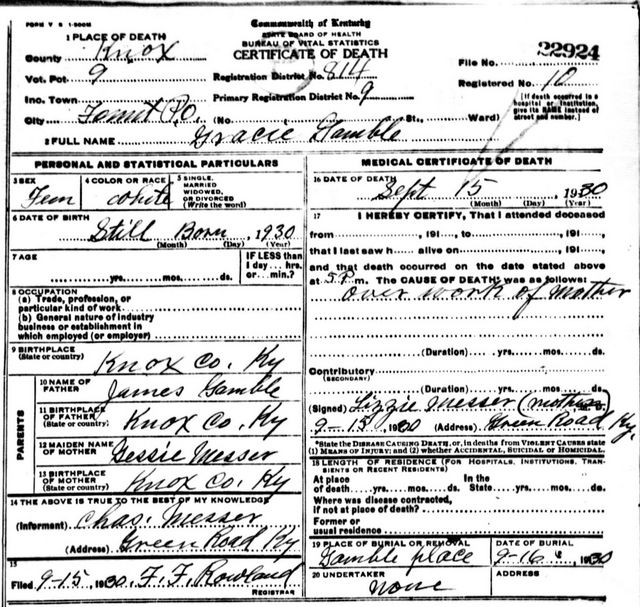 FORM V S 1-500M
Commonwealth of Kentucky
STATE BOARD OF HEALTH
BUREAU OF VITAL STATISTICS
CERTIFICATE OF DEATH
1 PLACE OF DEATH
County Knox
Vot. Pct 9
Inc. Town
City P.O.
Registration District No. 814
Primary Registration District No. 9
(No. St., Ward)
File No. 22924
Registered No. 10
[If death occurred in a hospital or institution, give its NAME instead of street and number.]
2 FULL NAME Gracie Gamble
PERSONAL AND STATISTICAL PARTICULARS
3 SEX Fem
4 COLOR OR RACE white
5 SINGLE, MARRIED WIDOWED, OR DIVORCED (Write the word)
6 DATE OF BIRTH Still Born, 1930
(Month) (Day) (Year)
7 AGE
yrs. mos. ds.
IF LESS than I day, hrs. or min.?
8 OCCUPATION
(a) Trade, profession, or particular kind of work
(b) General nature of industry business or establishment in which employed (or employer)
9 BIRTHPLACE (State or country) Knox Co. Ky
PARENTS
10 NAME OF FATHER James Gamble
11 BIRTHPLACE OF FATHER (State or country) Knox Co. Ky
12 MAIDEN NAME OF MOTHER Messer
13 BIRTHPLACE OF MOTHER (State or country) Knox Co. Ky
14 THE ABOVE IS TRUE TO THE BEST OF MY KNOWLEDGE
(Informant) Chas. Messer
(Address) Green Road Ky
15
Filed 9-15, 1930 F. F. Rowland
REGISTRAR
MEDICAL CERTIFICATE OF DEATH
16 DATE OF DEATH Sept 15 1930
(Month) (Day) (Year)
17 I HEREBY CERTIFY, That I attended deceased
from , 191 , to , 191 ,
that I last saw h alive on , 191 ,
and that death occurred on the date stated above
at 5 P m. The CAUSE OF DEATH* was as follows:
over work of Mother
(Duration) yrs. mos. ds.
Contributory (SECONDARY)
(Duration) yrs. mos. ds.
(Signed) Lizzie Messer (mother) M. D.
9-15 1930 (Address) Green Road Ky,
*State the DISEASE CAUSING DEATH, or, in deaths from VIOLENT CAUSES state (1) MEANS OF INJURY; and (2) whether ACCIDENTAL, SUICIDAL or HOMICIDAL.
18 LENGTH OF RESIDENCE (FOR HOSPITALS, INSTITUTIONS, TRANSIENTS OR RECENT RESIDENTS)
At place of death yrs. mos. ds. In the State yrs. mos. ds.
Where was disease contracted, if not at place of death?
Former or usual residence
19 PLACE OF BURIAL OR REMOVAL Gamble place
DATE OF BURIAL 9-16 1930
20 UNDERTAKER none
ADDRESS